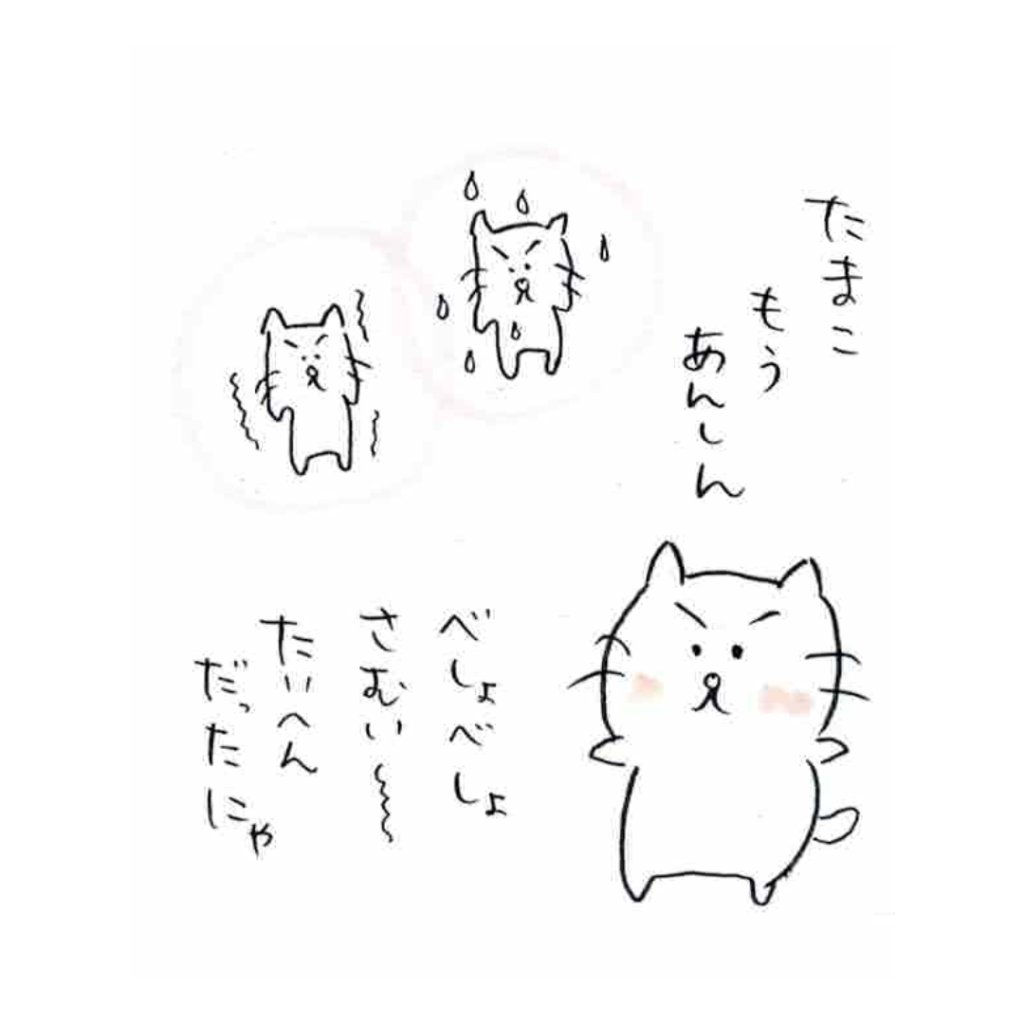 たまこ
もう
あんしん
べしょべしょ
さむい〜
たいへん
だったにゃ